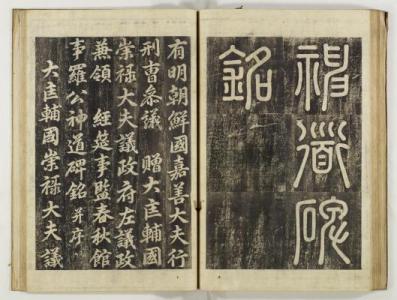 神道碑
銘
有明朝鮮國嘉善大夫行
刑曹叅議 贈大匡輔國
崇禄大夫議政府左議政
兼領 經筵事監春秋館
事羅公神道碑銘 并序
大匡輔國崇禄大夫議